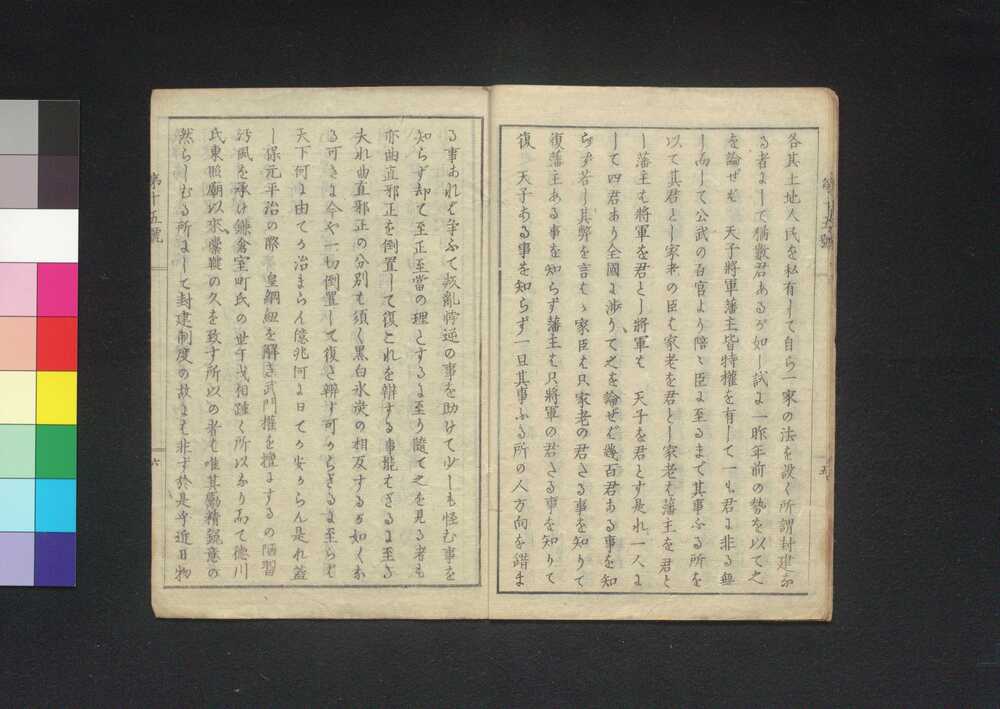 各其土地人民を私有して自ら一家の法を設く所謂封建な
る者にして猶數君あるが如し試に一昨年前の勢を以て之
を論ぜむ　天子將軍藩主皆特權を有して一も君に非る無
し而して公武の百官より陪々臣に至るまで其事ふる所を
以て其君とし家老の臣も家老を君とし家老も藩主を君と
し藩主も將軍を君とし將軍も　天子を君とす是れ一人に
して四君あり全國に渉りて之を論せば幾百君ある事を知
らず若し其弊を言もゝ家臣も只家老の君たる事を知りて
復藩主ある事を知らず藩主も只將軍の君たる事を知りて
復　天子ある事を知らず一旦其事ふる所の人方向を錯ま
第十五號
五
る事あれば爭ふて叛亂悖逆の事を助けて少しも怪む事を
知らず却て至正至當の理とするに至り隨て之を見る者も
亦曲直邪正を倒置して復これを辨する事能もざるに至る
夫れ曲直邪正の分別も須く黒白氷炭の相反するが如くな
る可きに今や一切倒置して復た辨す可からざるに至らば
天下何に由てか治まらん億兆何に日てか安からん是れ蓋
し保元平治の際　皇綱紐を解き武門權を擅にするの陋習
汚風を承け鎌倉室町氏の世干戈相踵く所以なり而て德川
氏東照廟以來櫜鞬の久を致す所以の者も唯其勵精鋭意の
然らしむる所にして封建制度の故にも非ず於是乎近日物
第十五號
六